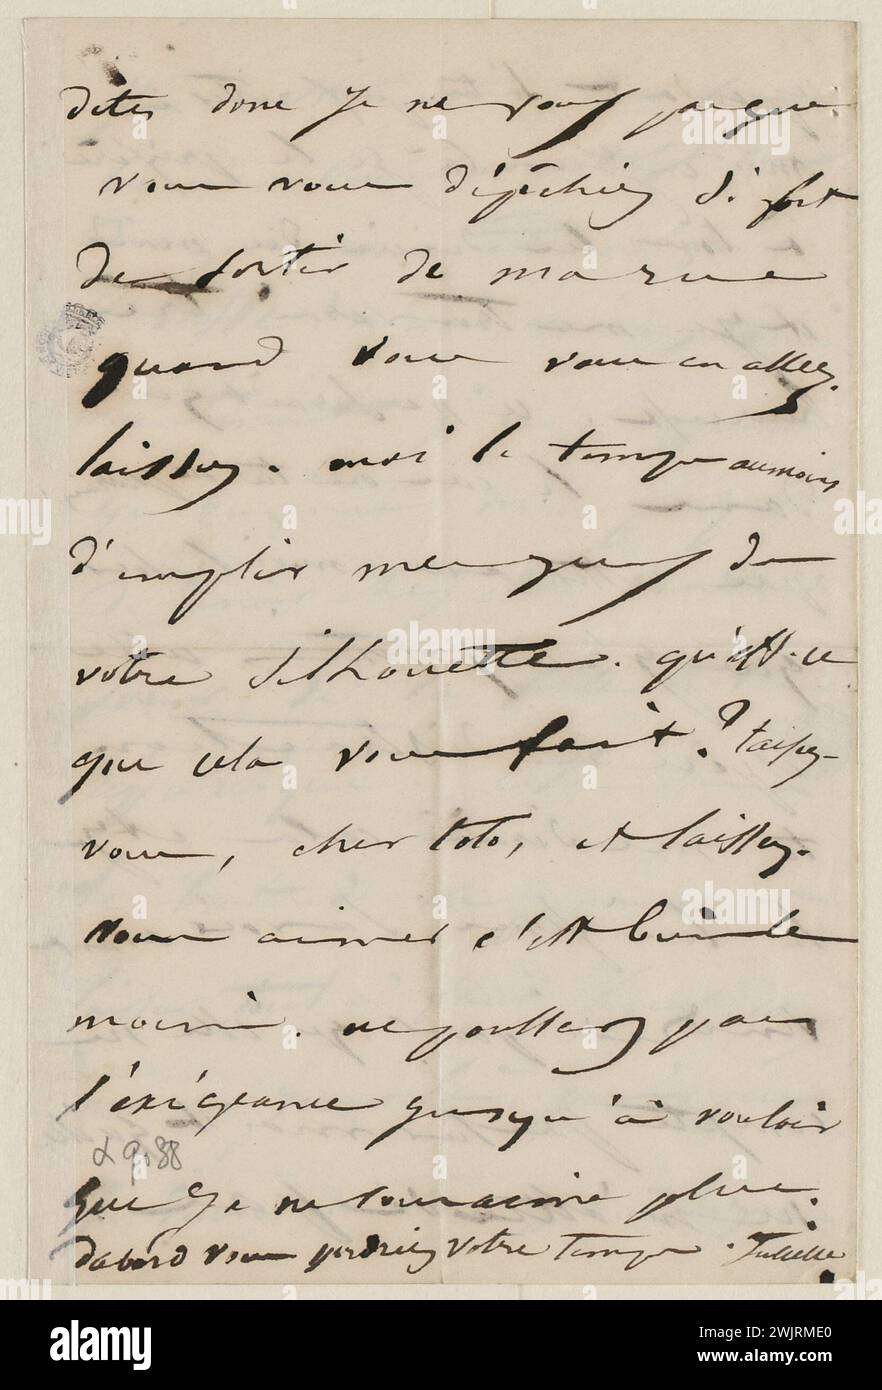 dites donc je ne veux pas que
vous vous dépêchiez si fort
de sortir de ma rue
quand vous vous en allez.
laissez-moi le temps au moins
d'emplir mes yeux de
votre silhouette. qu'est-ce
que cela vous fait ? taisez-
vous, cher toto, et laissez-
vous aimer c'est bien le
moins. ne poussez pas
l'exigeance jusqu'à vouloir
que je ne vous aime plus.
d'abord vous perdriez votre temps. Juliette
α 9088
alamy
Image ID: 2WJRME0
www.alamy.com